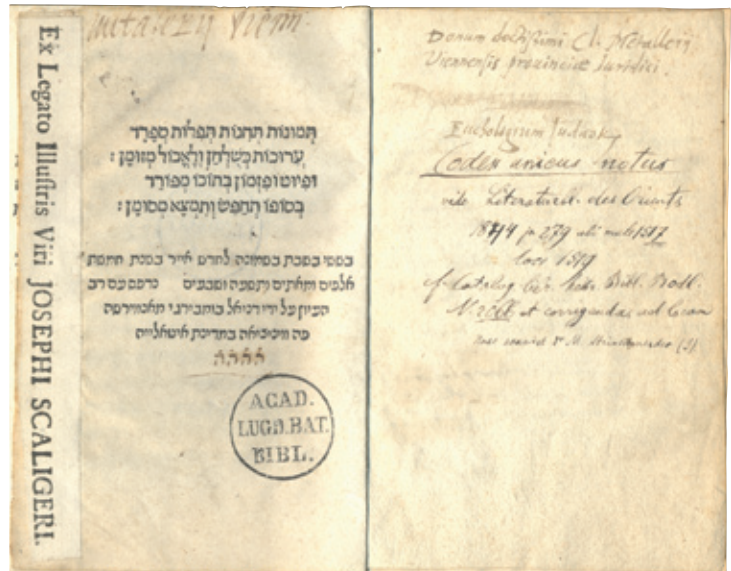 Ex Legato Illuſtris Viri JOSEPHI SCALIGERI.
תמונות תחנות תפלות ספרד
ערוכות כשלחן ולאכול מזומן :
ופיוט ופזמון בתוכו מפורד
בסופו תחפש ותמצא מסומן :
בששי בשבת בשמונה לחדש אייר בשנת חמשת
אלפים ומאתים ותשעה ושבעים נדפס עם רב
העיון על ידי דניאל בומבירגי מאנווירשה
פה וויניציאה במדינת איטאלייה
ACAD.
LUGD.BAT.
BIBL.
Donum doctissimi Cl. Metallerij
Viennensis provinciæ Iuridici.
Euchologium Judaor
Codex unicus notus
vide Literaturbl. des Orients
1844 p 279 ubi male 1517
loco 1519
cf. Catalog. libr. hebr. Bibl. Bodl.
N. et corrigendas ad locum